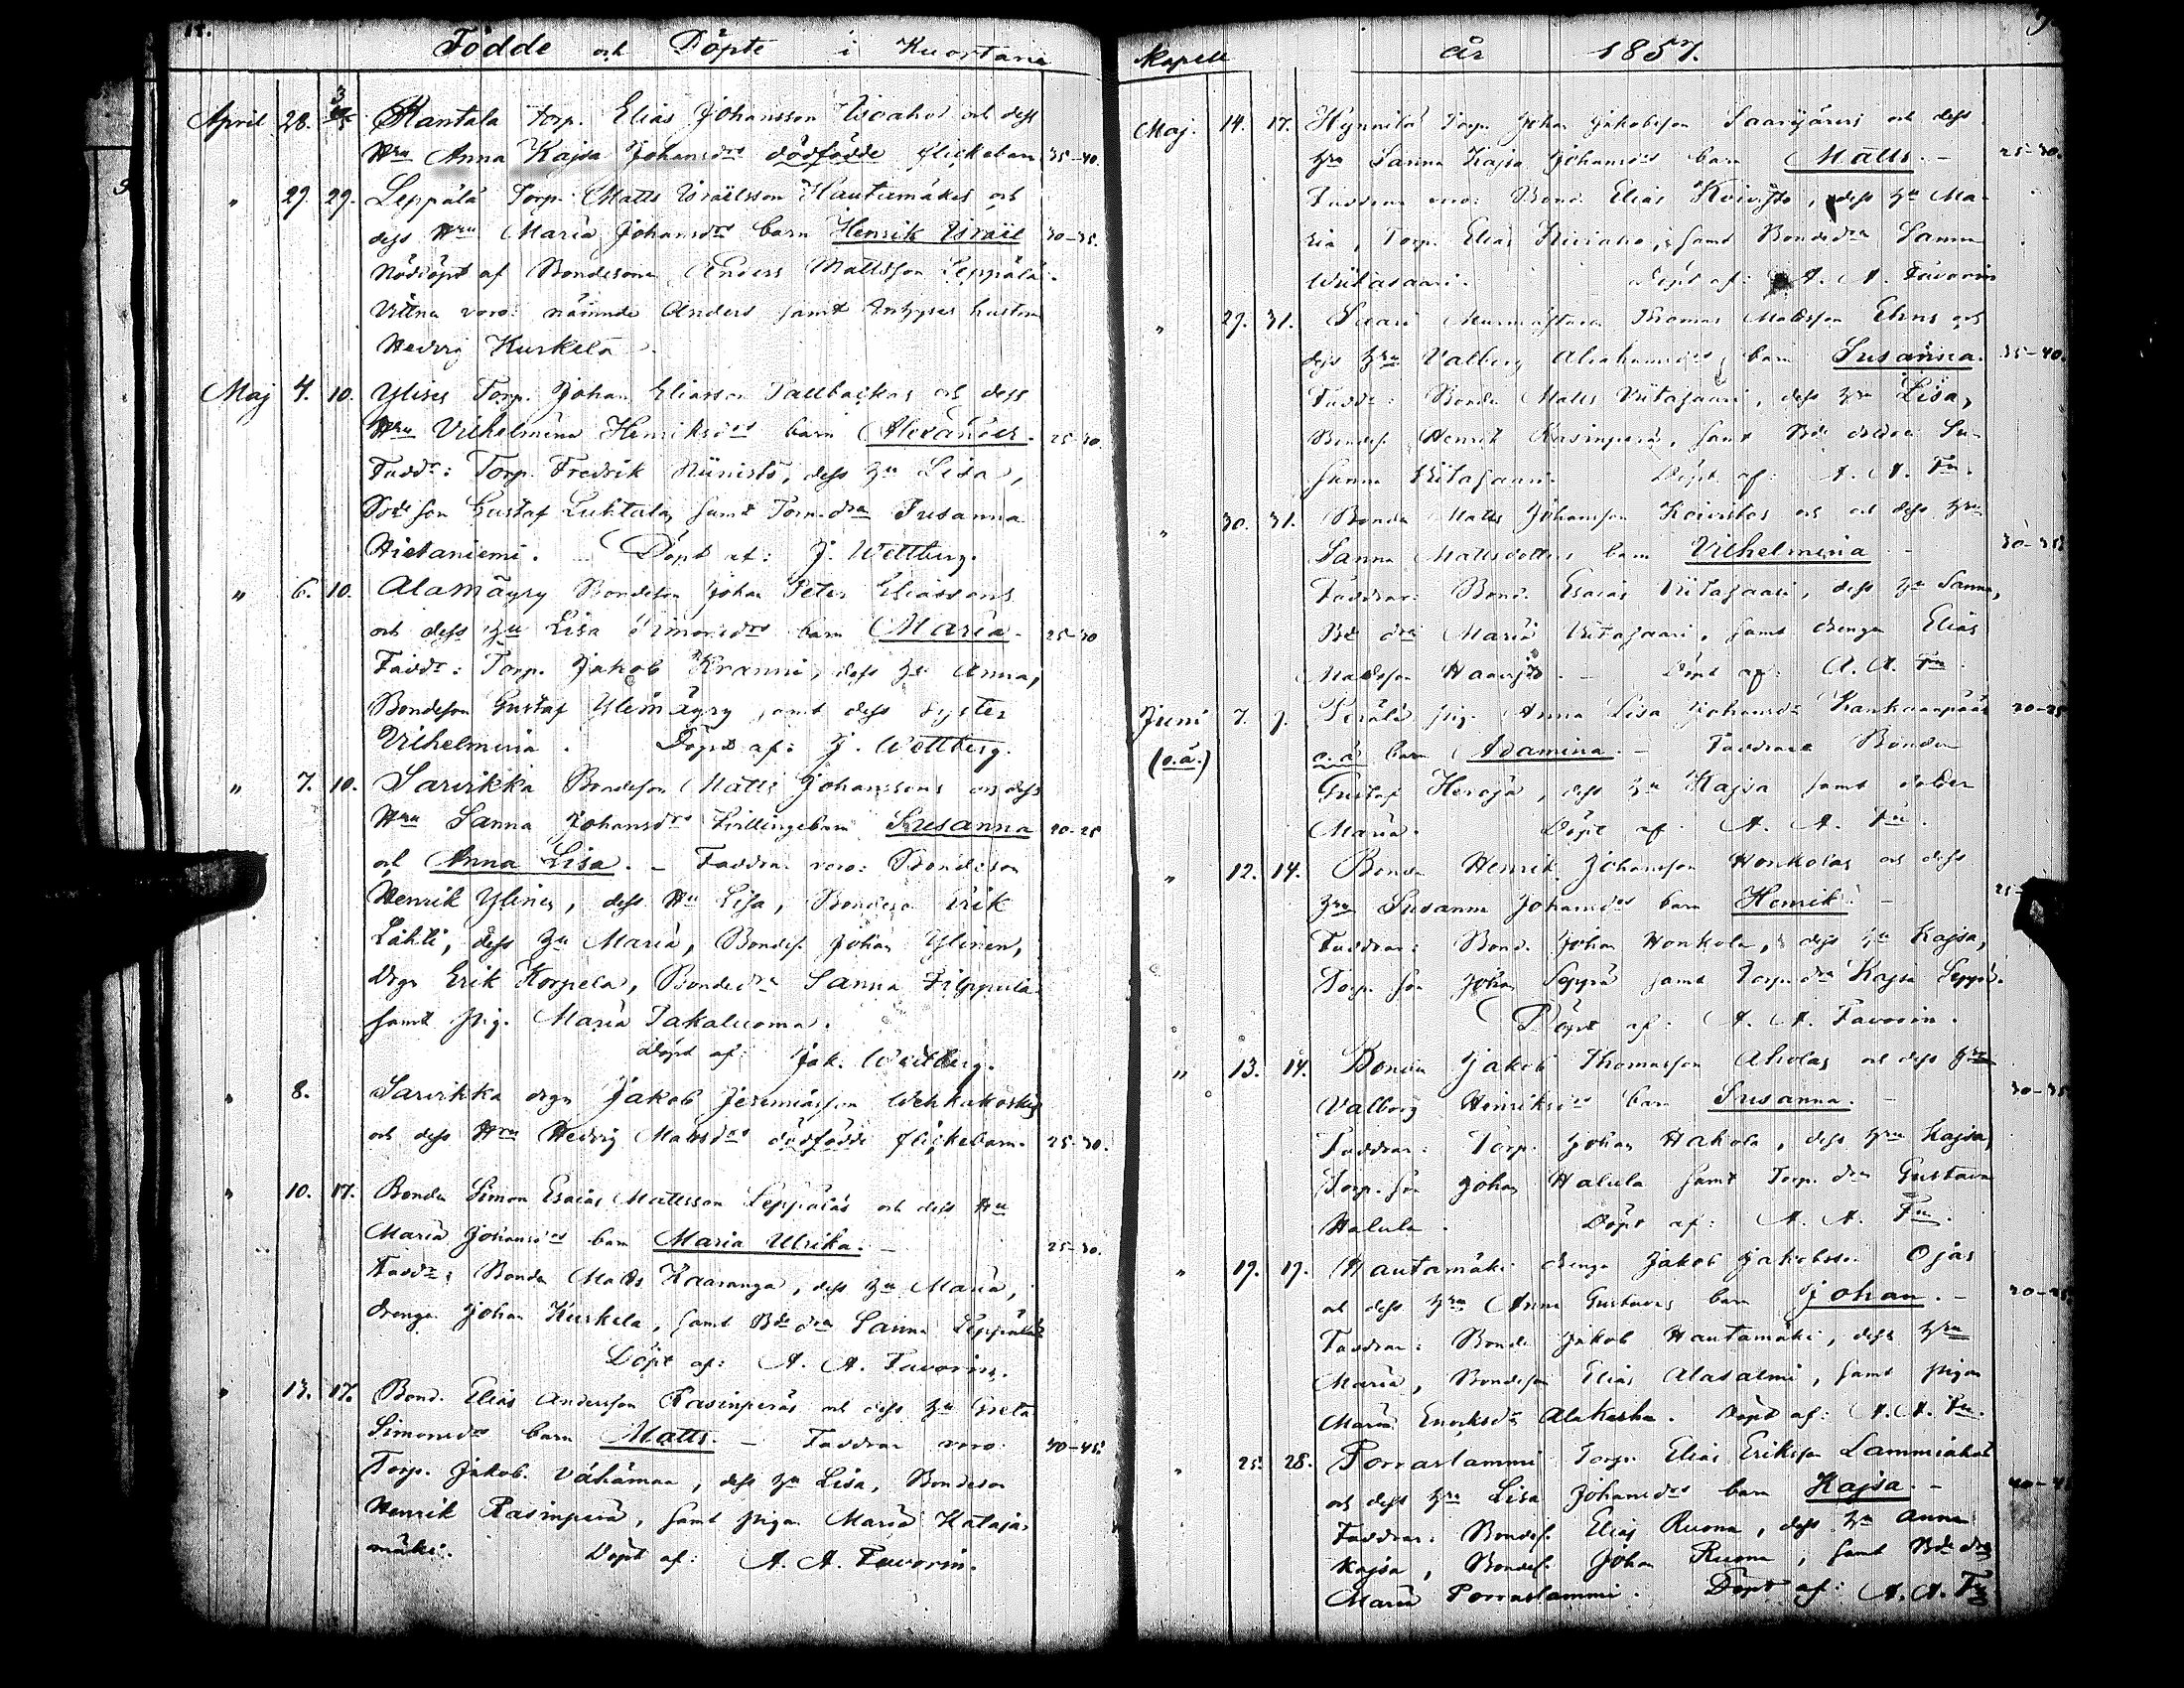 Födde och Döpte i Kuortane
April 28. 3 Rantala torp. Elias Johansson och dess
Hru Anna Kajsa Johansdrs dödfödde flickebarn 35-40.
" 29. 29. Leppälä Torp. Matts Israelsson Hautamäkis och
dess Hru Maria Johansdrs barn Henrik Israel 30-35.
Nöddöpt af Bondesonen Anders Mattsson Leppälä.
Vittna voro: nämnde Anders samt hustru
Hedvig Kurkela.
Maj 4. 10. Ylises Torp. Johan Eliasson Tallbackas och dess
Hru Vilhelmina Henriksdrs barn Alexander. 25-30.
Faddr: Torp. Fredrik Niinistö, dess Hu Lisa,
son Gustaf Luhtala, samt Torp. dra Susanna
Hietaniemi. Döpt af: J. Wettberg.
" 6. 10. Alamäyry Bondeson Johan Peter Eliassons
och dess Hu Lisa Simonsdrs barn Maria. 25-30
Faddr: Torp. Jakob Kranni, dess Hu Anna,
Bondeson Gustaf Ylimäyry samt dess syster
Vilhelmina. Döpt af: J. Wettberg.
" 7. 10. Sarvikka Bondeson Matts Johanssons och dess
Hru Sanna Johansdrs Tvillingebarn Susanna 20-25
och Anna Lisa. - Faddrar voro: Bondeson
Henrik Ylinen, dess Hu Lisa, Bondeson Erik
Lahti, dess Hu Maria, Bondes. Johan Ylinen,
Drgn Erik Korpela, Bondedra Sanna Filppula
samt pig. Maria Takaluoma.
Döpt af: Jak. Wettberg.
" 8. Sarvikka drgn Jakob Jeremiasson Wehkakoskis
och dess Hru Hedvig Mattsdrs dödfödde flickebarn 25-30.
" 10. 17. Bonden Simon Esaias Mattsson Leppäläs och dess Hu
Maria Johansdrs barn Maria Ulrika. - 25-30.
Faddr: Bonden Matts Kaaranga, dess Hu Maria,
drengen Johan Kurkela, samt Bde dra Sanna Leppälä
Döpt af: A. A. Favorin.
" 13. 17. Bond. Elias Andersson Rasinperäs och dess Hu Greta
Simonsdrs barn Matts. - Faddrar voro: 40-45.
Torp. Jakob Vähämaa, dess Hu Lisa, Bondeson
Henrik Rasinperä, samt pigan Maria Kataja-
mäki. Döpt af: A. A. Favorin.
kapell år 1857.
Maj. 14. 17. Hynnilä Torp. Johan Jakobsson Saarijärvis och dess
Hru Sanna Kajsa Johansdrs barn Matts. - 25-30.
Faddrar voro: Bond. Elias Koivisto, dess Hu Ma-
ria, Torp. Elias Kiviaho, samt Bondedra Sanna
Wiitasaari. Döpt af: A. A. Favorin
" 29. 31. Murmästaren Thomas Mattsson Elens och
dess Hru Valborg Abrahamsdrs barn Susanna. 35-40.
Faddr: Bonden Matts Wiitasaari, dess Hru Lisa,
Bondes. Henrik Rasinperä, samt Bde Su-
sanna Wiitasaari. Döpt af: A. A. Fn.
" 30. 31. Bonden Matts Johansson Koivistos och dess Hru
Sanna Mattsdotters barn Vilhelmina - 30-35.
Faddrar: Bond. Esaias Wiitasaari, dess Hu Sanna,
Bde dra Maria Wiitasaari, samt drengen Elias
Mattsson Haavisto. - Döpt af: A. A. Fn.
Juni 7. 7. Perälä pig. Anna Lisa Johansdr Kankaanpääs 20-25
(o.ä.) o.ä. barn Adamina. - Faddrar Bonden
Gustaf Heroja, dess Hu Kajsa samt dotter
Maria. Döpt af A. A. Fn.
" 12. 14. Bonden Henrik Johansson Honkolas och dess
Hru Susanna Johansdrs barn Henrik. - 25-
Faddrar: Bond. Johan Honkola, dess Hu Kajsa,
Torp. son Johan Seppä samt Torp. dra Kajsa Seppä.
Döpt af: A. A. Favorin.
" 13. 14. Bonden Jakob Thomasson Aholas och dess Hru
Valborg Henriksdrs barn Susanna. - 30-35
Faddrar: Torp. Johan Hakola, dess Hru Kajsa,
Torp. son Johan Halula samt Torp. dra Gustava
Halula. Döpt af: A. A. Fn.
" 19. 19. Hautamäki drengen Jakob Jakobsson Ojas
och dess Hru Anna Gustavas barn Johan. - 20-25
Faddrar: Bonden Jakob Hautamäki, dess Hru
Maria, Bondeson Elias Alasalmi, samt pigan
Maria Enoksdr Alakaska. Döpt af: A. A. Fn.
" 25. 28. Porraslammi Torp. Elias Eriksson Lammiahos
och dess Hru Lisa Johansdrs barn Kajsa. - 40-4
Faddrar: Bondes. Elias Ruona, dess Hu Anna
Kajsa, Bondes. Johan Ruona, samt Bde dra
Maria Porraslammi. Döpt af: A. A. Fn